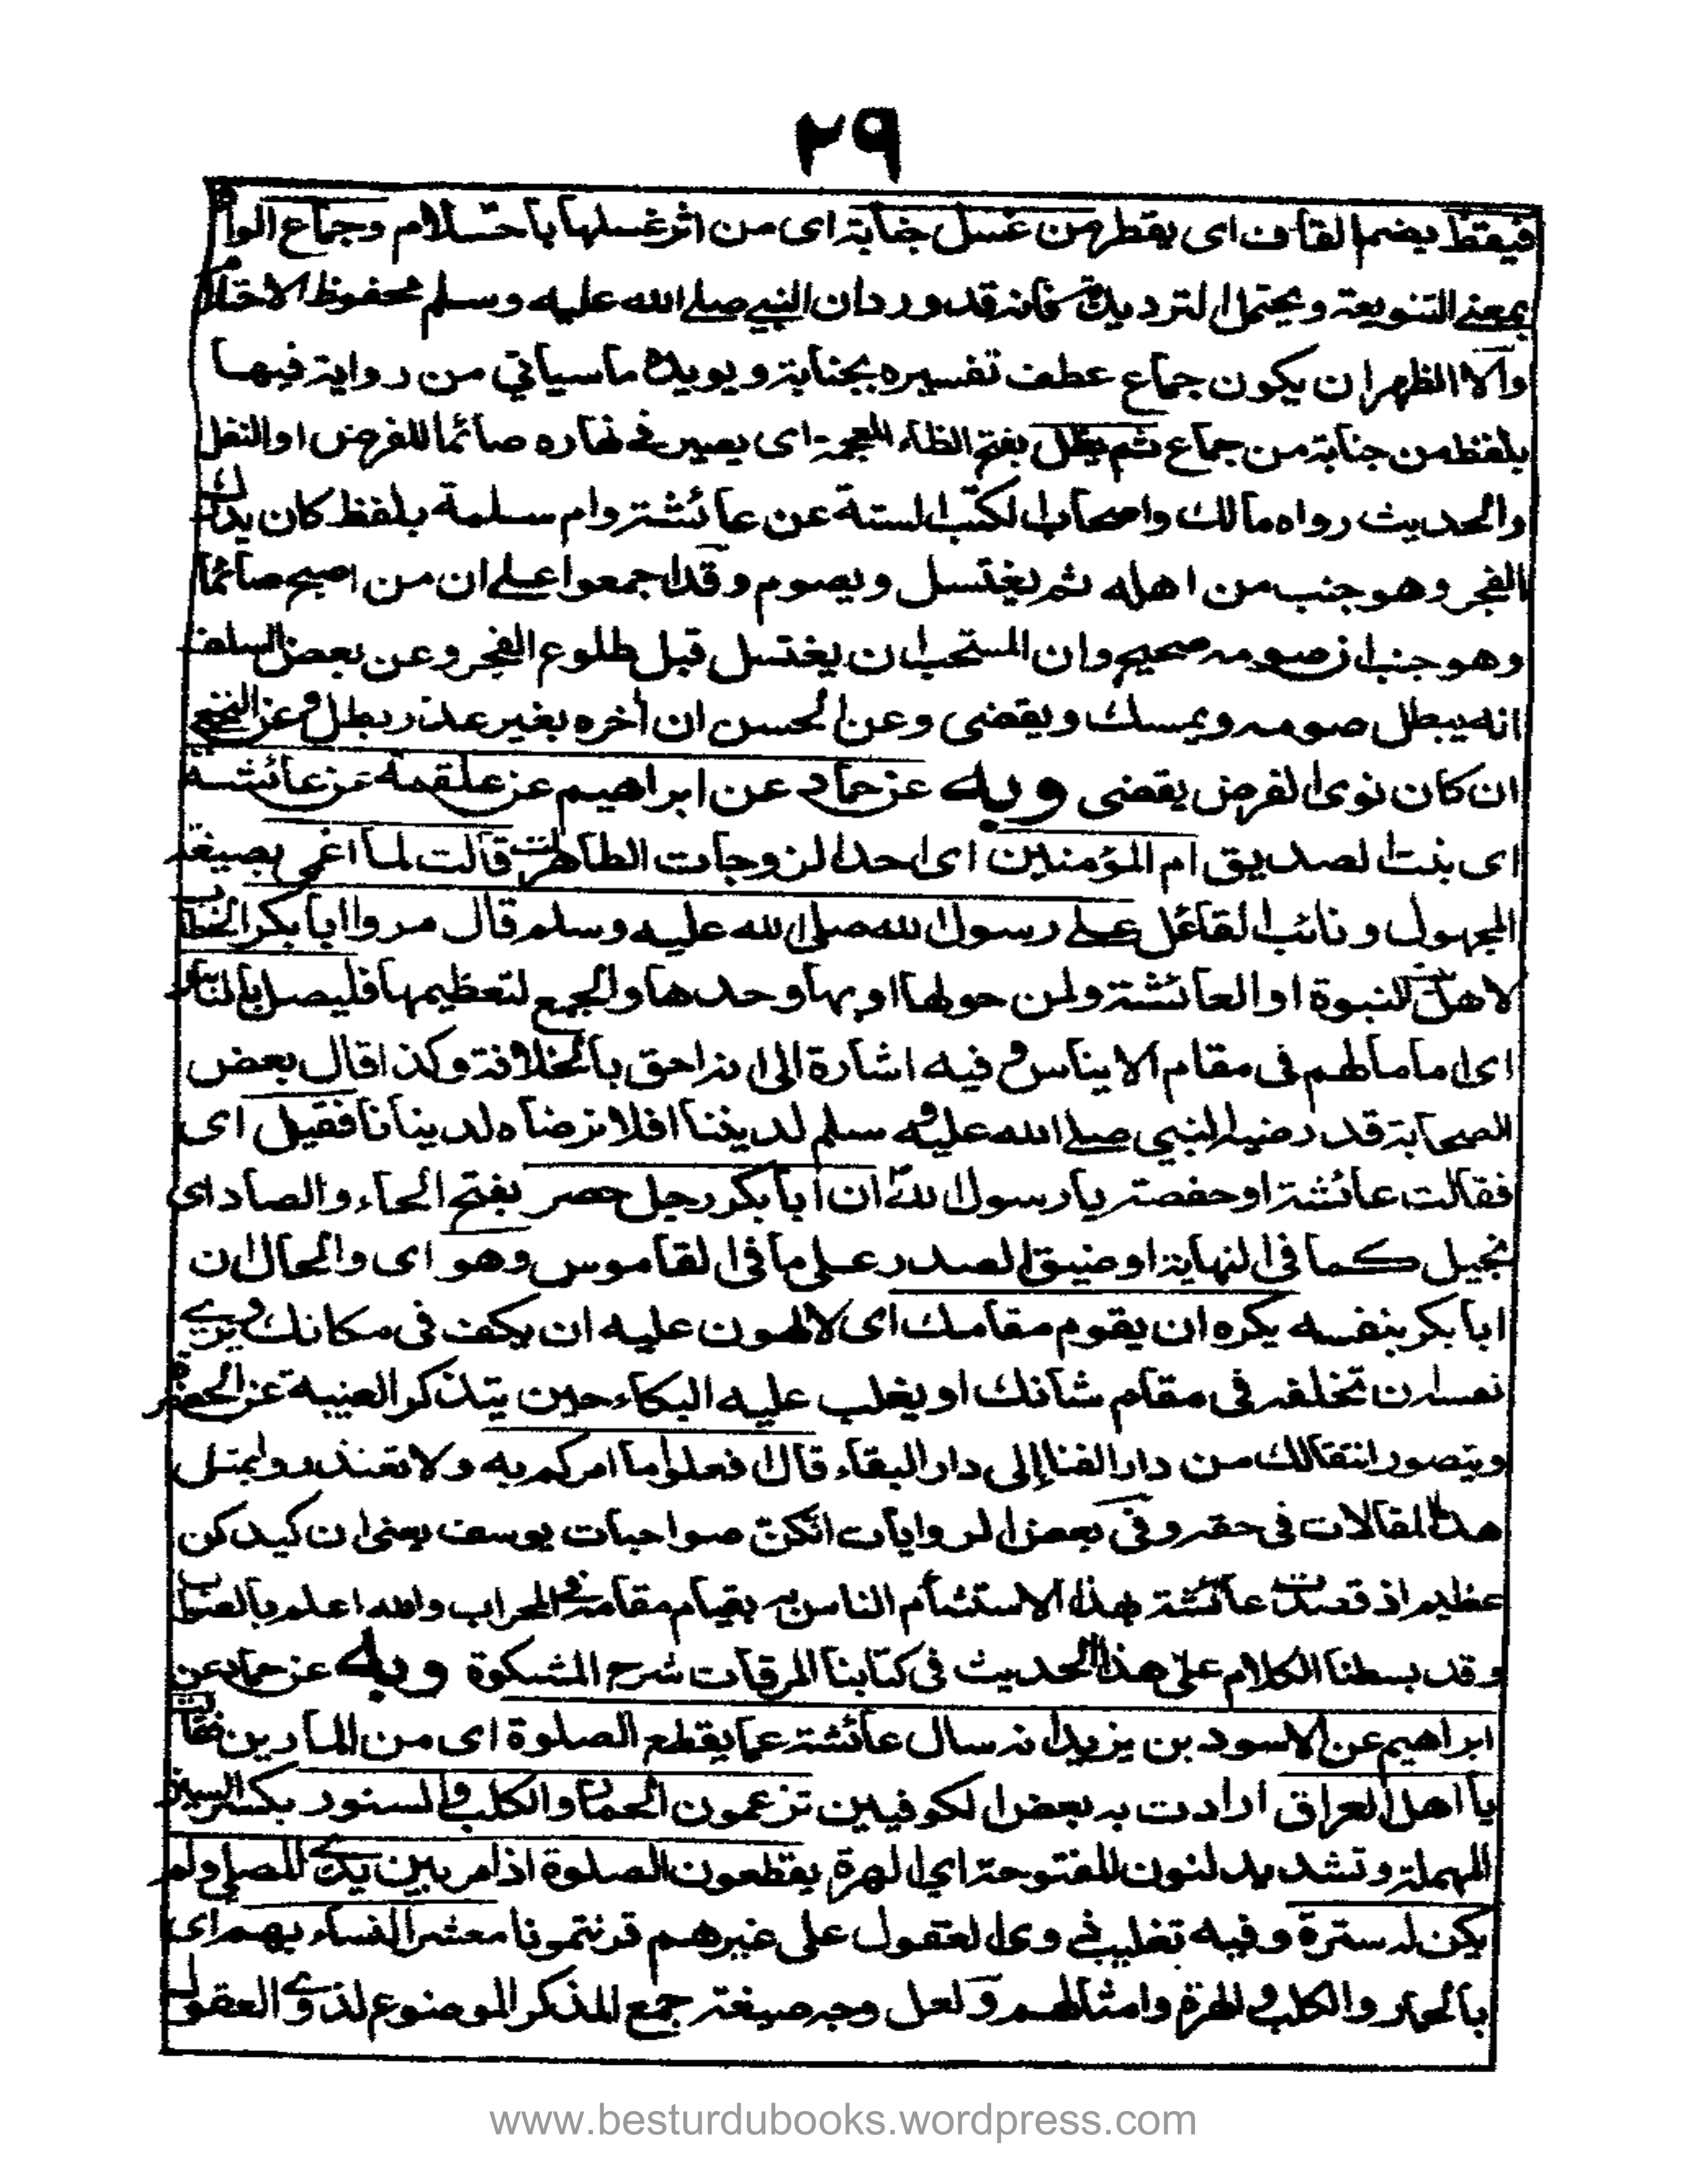 ٢٩
فيقطر بضم القاف اى يقطر من غسل جنابة اى من اثر غسلها باحتلام وجماع الواو
بمعنى التنويعة ويحتمل الترديد فانه قد ورد ان النبى صلى الله عليه وسلم محفوظ الاحتلام
والاظهر ان يكون جماع عطف تفسيره بجنابة ويويده ماسياتي من رواية فيها
بلفظ من جنابة من جماع ثم يظل بفتح الظاء المعجمة اى يصير فى نهاره صائما للفرض او النفل
والحديث رواه مالك واصحاب الكتب الستة عن عائشة وام سلمة بلفظ كان يدركه
الفجر وهو جنب من اهله ثم يغتسل ويصوم وقد اجمعوا على ان من اصبح صائما
وهو جنب ان صومه صحيح وان المستحب ان يغتسل قبل طلوع الفجر وعن بعض السلف
انه يبطل صومه ويمسك ويقضى وعن الحسن ان اخره بغير عذر بطل وعن النخعى
ان كان نوى الفرض يقضى وبه عن حماد عن ابراهيم عن علقمة عن عائشة
اى بنت الصديق ام المؤمنين اى احد الزوجات الطاهرات قالت لما اغمى بصيغة
المجهول ونائب الفاعل على رسول الله صلى الله عليه وسلم قال مروا ابا بكر الخطاب
لاهل النبوة او العائشة ولمن حولها او بها وحدها والجمع لتعظيمها فليصل بالناس
اى اماما لهم فى مقام الايناس وفيه اشارة الى انه احق بالخلافة وكذا قال بعض
الصحابة قد رضيه النبي صلى الله عليه وسلم لديننا افلا نرضاه لدينانا فقيل اى
فقالت عائشة او حفصة يا رسول الله ان ابا بكر رجل حصر بفتح الحاء والصاد اى
بخيل كما فى النهاية او ضيق الصدر على ما فى القاموس وهو اى والحال ان
ابا بكر بنفسه يكره ان يقوم مقامك اى لا لهون عليه ان يكف فى مكانك ويرى
نفسه ان تخلفه فى مقام شانك او يغلب عليه البكاء حين يتذكر الغيبة عن الحضرة
ويتصور انتقالك من دار الفنا إلى دار البقاء قال افعلوا ما امركم به ولا تعتذروا بمثل
هذه المقالات فى حقه وفى بعض الروايات انكن صواحبات يوسف يعنى ان كيدكن
عظيم اذ قصدت عائشة بهذا الاستشأم الناس به بقيام مقامه فى المحراب والله اعلم بالصواب
وقد بسطنا الكلام على هذا الحديث فى كتابنا المرقات شرح المشكوة وبه عن حماد عن
ابراهيم عن الاسود بن يزيد انه سال عائشة عما يقطع الصلوة اى من المارين فقالت
يا اهل العراق ارادت به بعض الكوفيين تزعمون الحمار والكلب والسنور بكسر السين
المهملة وتشديد النون المفتوحة اى الهرة يقطعون الصلوة اذا مر بين يدى المصلى ولم
يكن له سترة وفيه تغليب ذوى العقول على غيرهم قرنتمونا معشر النساء بهم اى
بالحمار والكلب والهرة وامثالهم ولعل وجه صيغة جمع المذكر الموضوع لذوى العقول
www.besturdubooks.wordpress.com